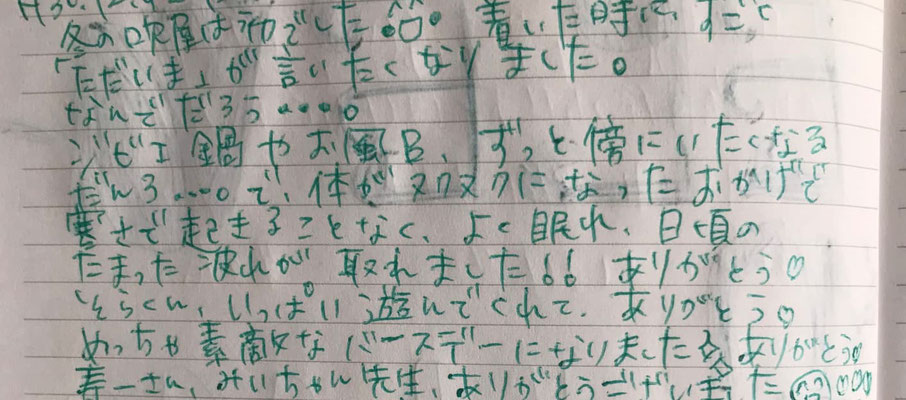 冬の吹屋は初でした 着いた時に、すごく
「ただいま」が言いたくなりました。
なんでだろう・・・・。
ジビエ鍋やお風呂、ずっと傍にいたくなる
だんろ・・・。で、体がヌクヌクになったおかげで
寒さで起きることなく、よく眠れ、日頃の
たまった疲れが取れました!! ありがとう♡
そらくん、いっぱい遊んでくれて、ありがとう♡
めっちゃ素敵なバースデーになりました ありがとう♡
寿一さん、みいちゃん先生、ありがとうございました ♡♡♡